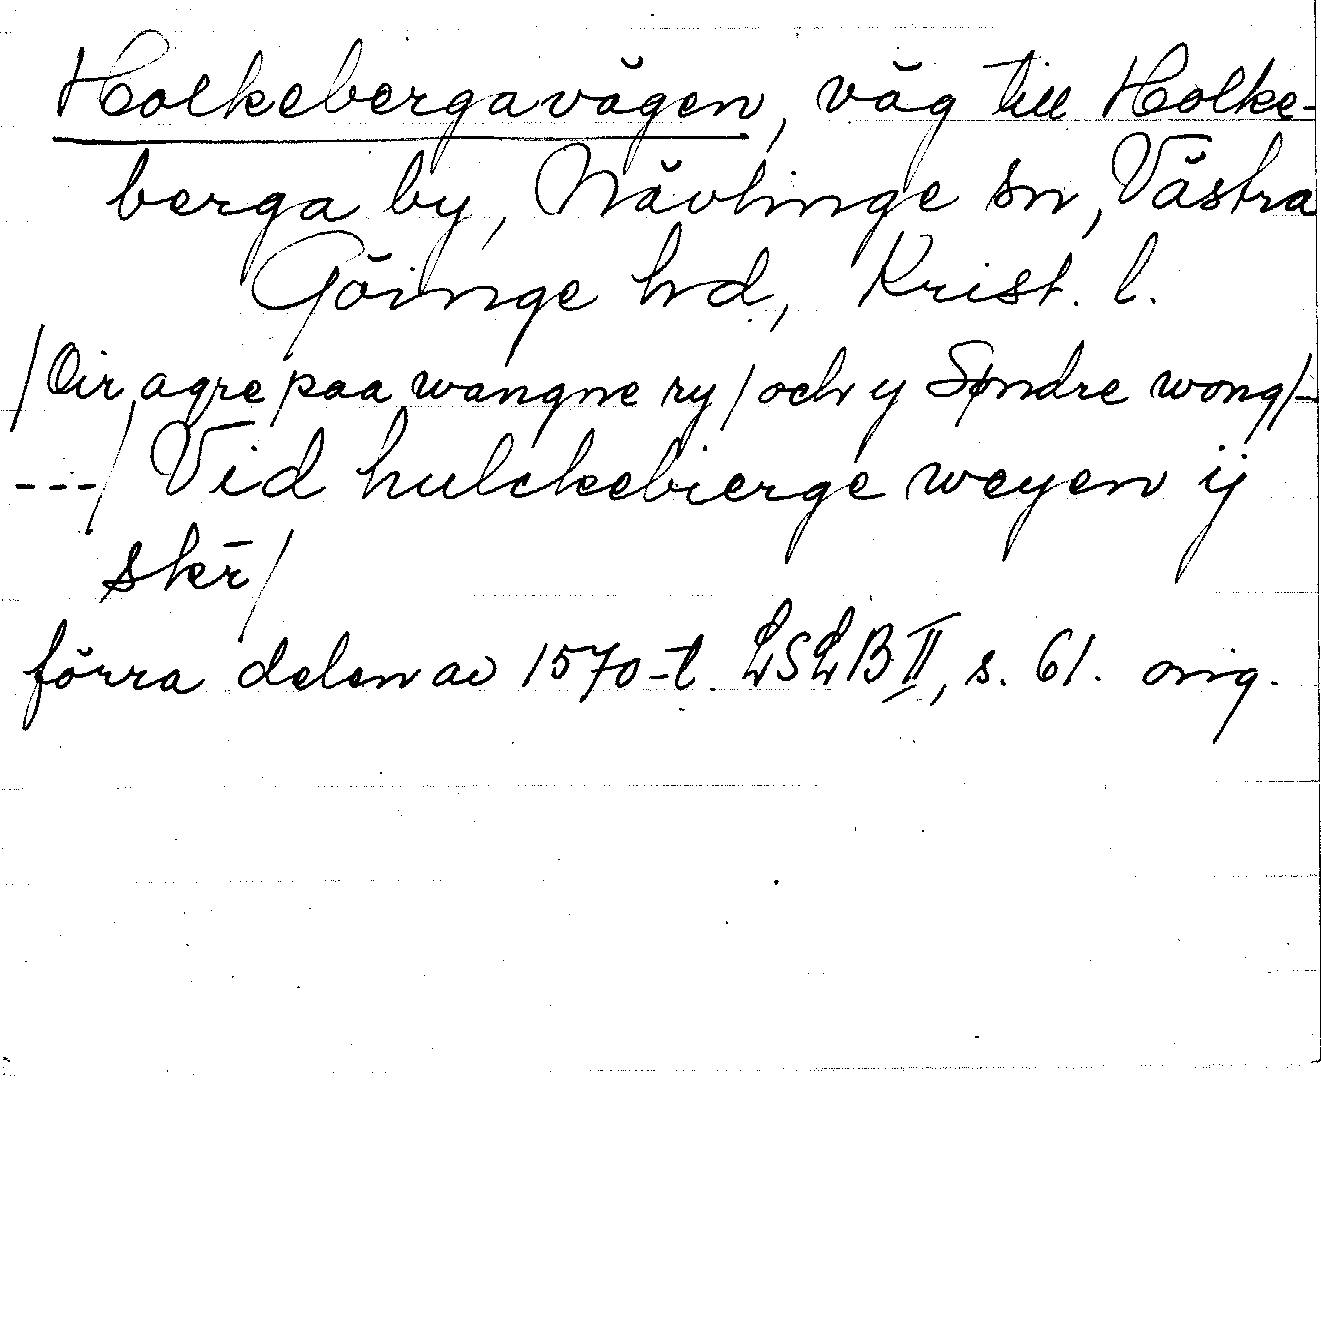 Holkebergavägen, väg till Holke-
berga by, Nävlinge sn, Västra
Göinge hd, Krist. l.
/Oir agre paa wangne ry/och y Søndre wong/-
---/ Vid hulckebierge weyen ij
skr̄/
förra delen av 1570-t. LSLB II, s. 61. orig.